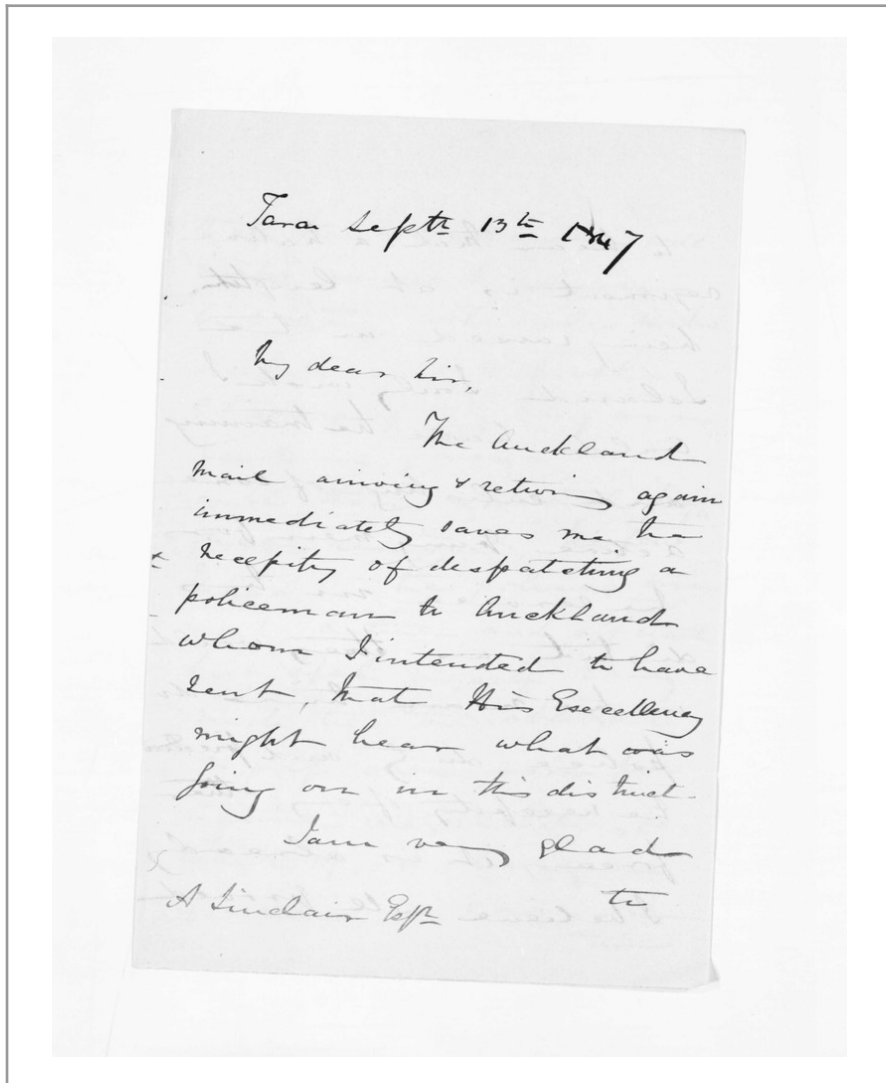 Tara Septr 13th 1847
My dear Sir,
The Auckland
mail arriving & returning again
immediately saves me the
necessity of despatching a
policeman to Auckland
whom I intended to have
sent, that His Excellency
might hear what was
going on in this district.
I am very glad
to
A Sinclair Esqr